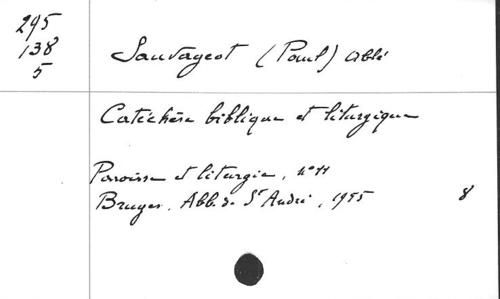 295
138
5
Sauvageot (Paul) Abbé
Catéchèse biblique et liturgique
Paroisse et liturgie, n° 11
Bruges. Abb. de St André, 1955 8